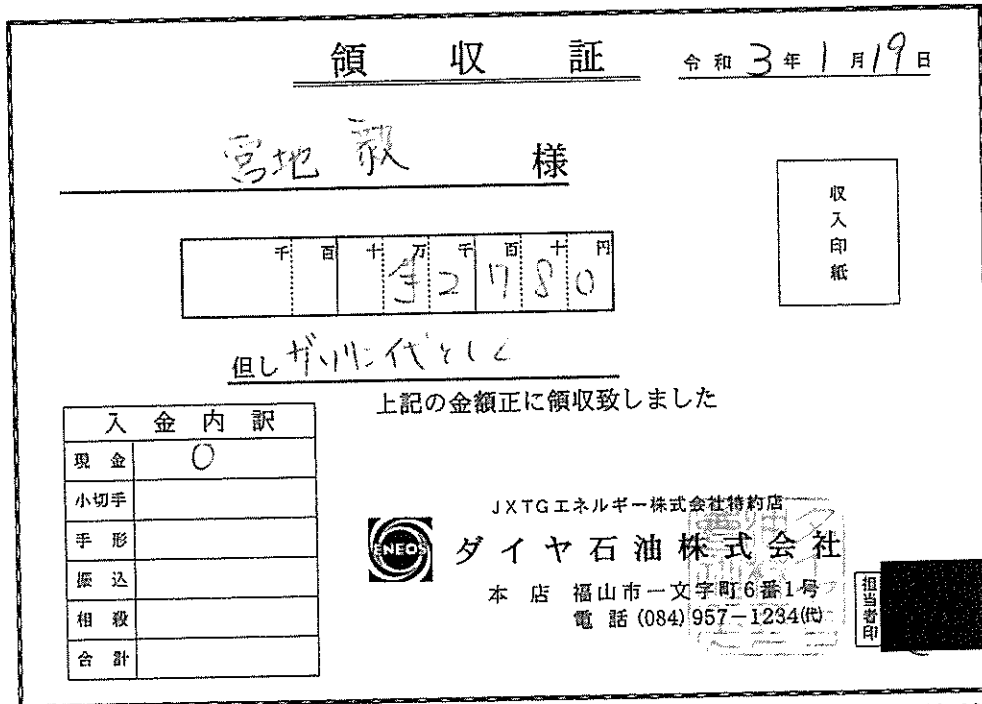 領収証
令和3年1月19日
宮地 毅 様
収入印紙
千百十万千百十円
2780
但しガソリン代として
上記の金額正に領収致しました
入金内訳
現金 〇
小切手
手形
振込
相殺
合計
JXTGエネルギー株式会社特約店
ENEOS
ダイヤ石油株式会社
本店 福山市一文字町6番1号
電話(084)957-1234㈹
担当者印